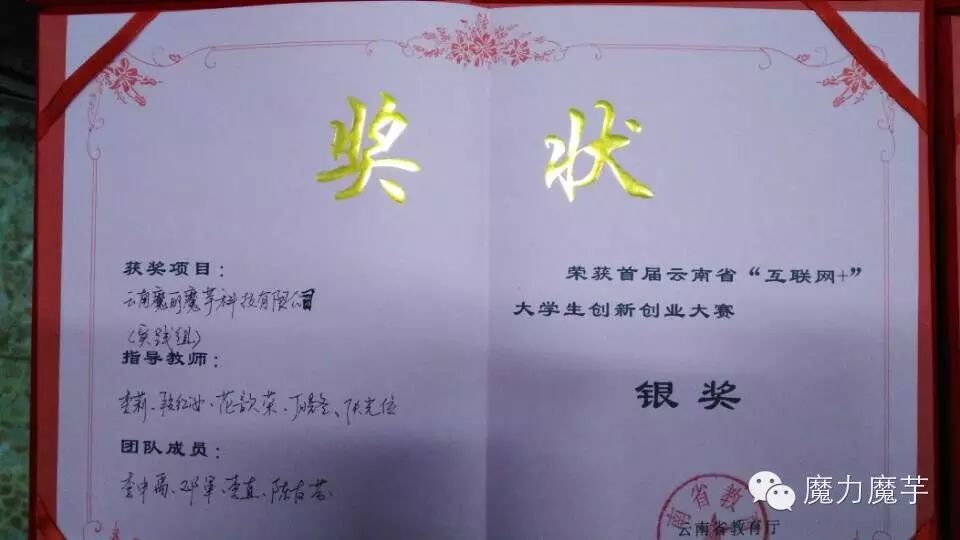 奖状
获奖项目：
云南魔丽魔芋科技有限公司
（实践组）
指导教师：
李莉、段红
团队成员：
李申禹、邓军、李直、
荣获首届云南省“互联网+”
大学生创新创业大赛
银奖
南省教
云南省教育厅
魔力魔芋